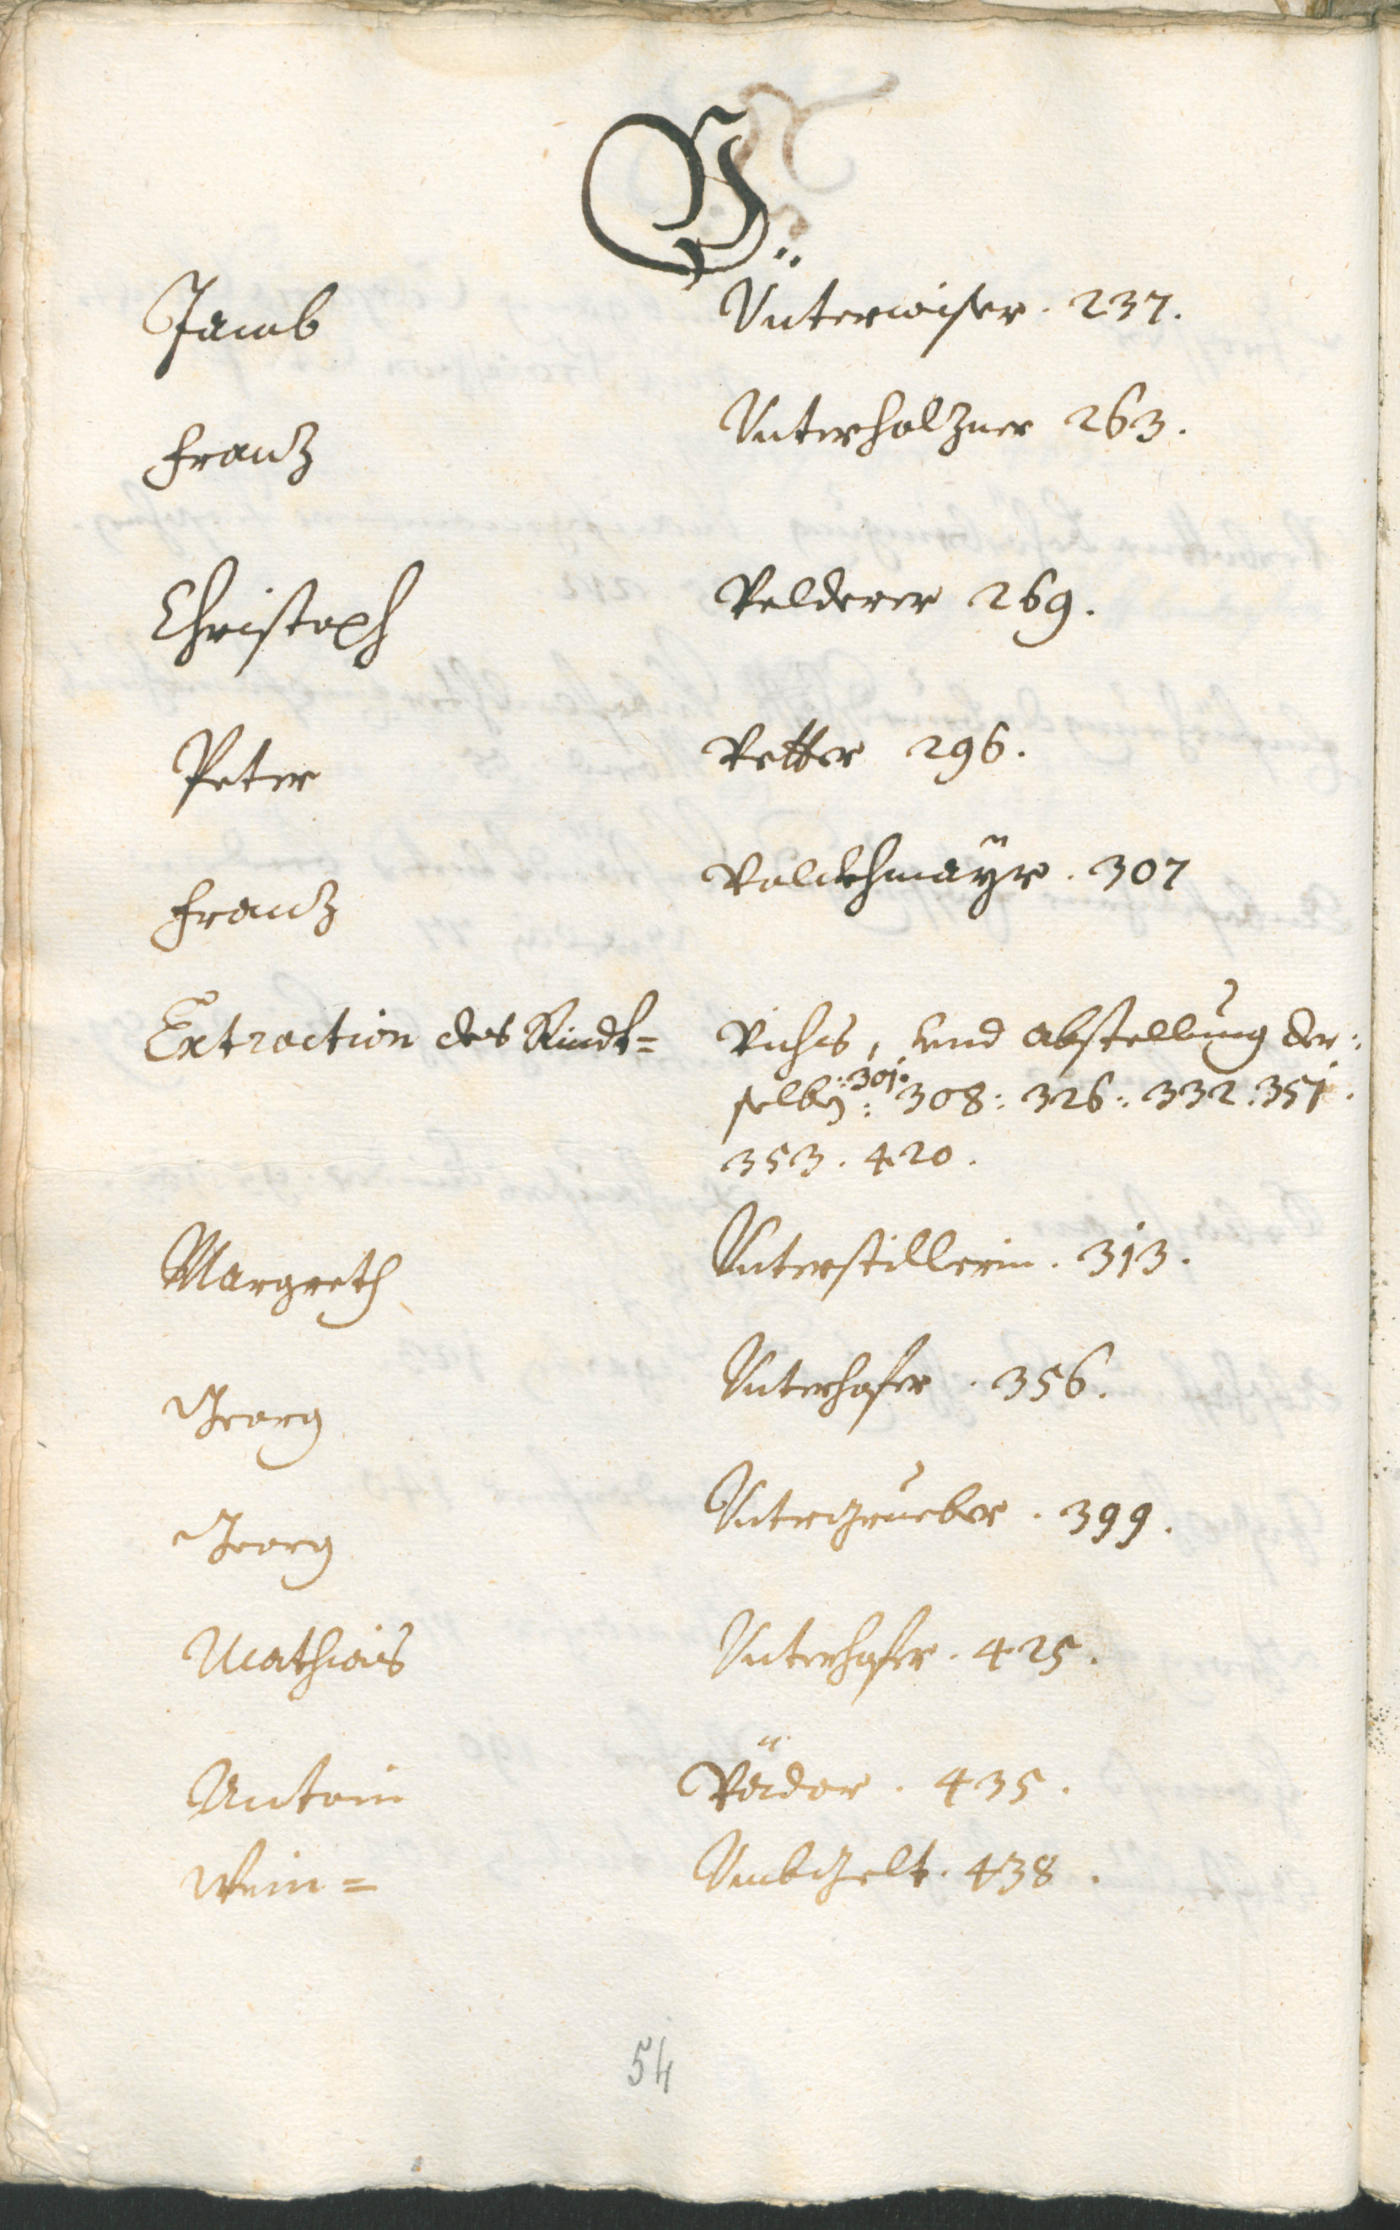 V.
Jacob Unterweiser. 237.
Franz Unterholzner 263.
Christoph Velderer 269.
Peter Vetter 296.
Franz Valckhmaÿr. 307
Extraction des Rindt= Vichs, und abstellung der:
:301.
selben: 308: 326: 332: 351.
353. 420.
Margreth Unterstillerin. 313.
Georg Unterhofer. 356.
Georg Untergrueber. 399.
Mathias Unterhofer. 425.
Antoni 435.
Wein= Umbgelt. 438.
54